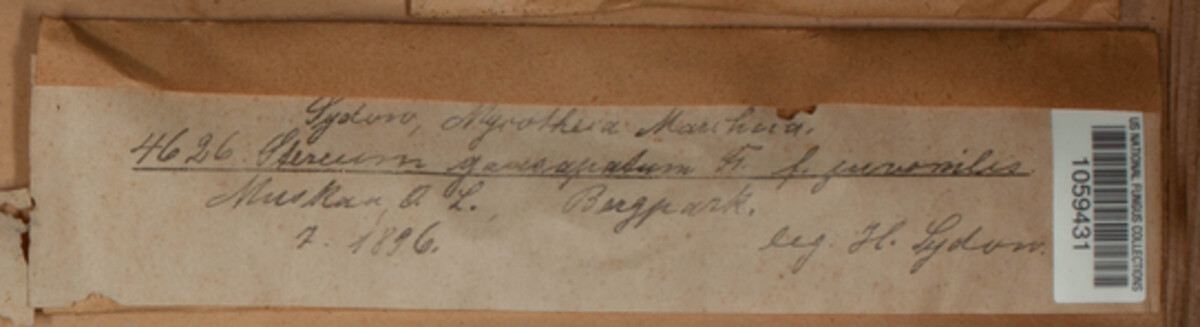 Sydow, Mycotheca Marchica.
4626. Stereum gausapatum Fr. f. juvenilis.
Muskau, O. L., Bergpark.
7. 1896. leg. H. Sydow.
US NATIONAL FUNGUS COLLECTIONS
1059431